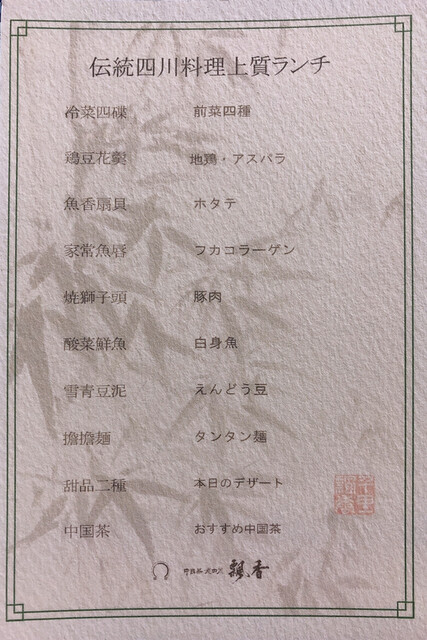 伝統四川料理上質ランチ
冷菜四碟 前菜四種
鶏豆花羹 地鶏・アスパラ
魚香扇貝 ホタテ
家常魚唇 フカコラーゲン
焼獅子頭 豚肉
酸菜鮮魚 白身魚
雪青豆泥 えんどう豆
擔擔麺 タンタン麺
甜品二種 本日のデザート
中国茶 おすすめ中国茶
飄香